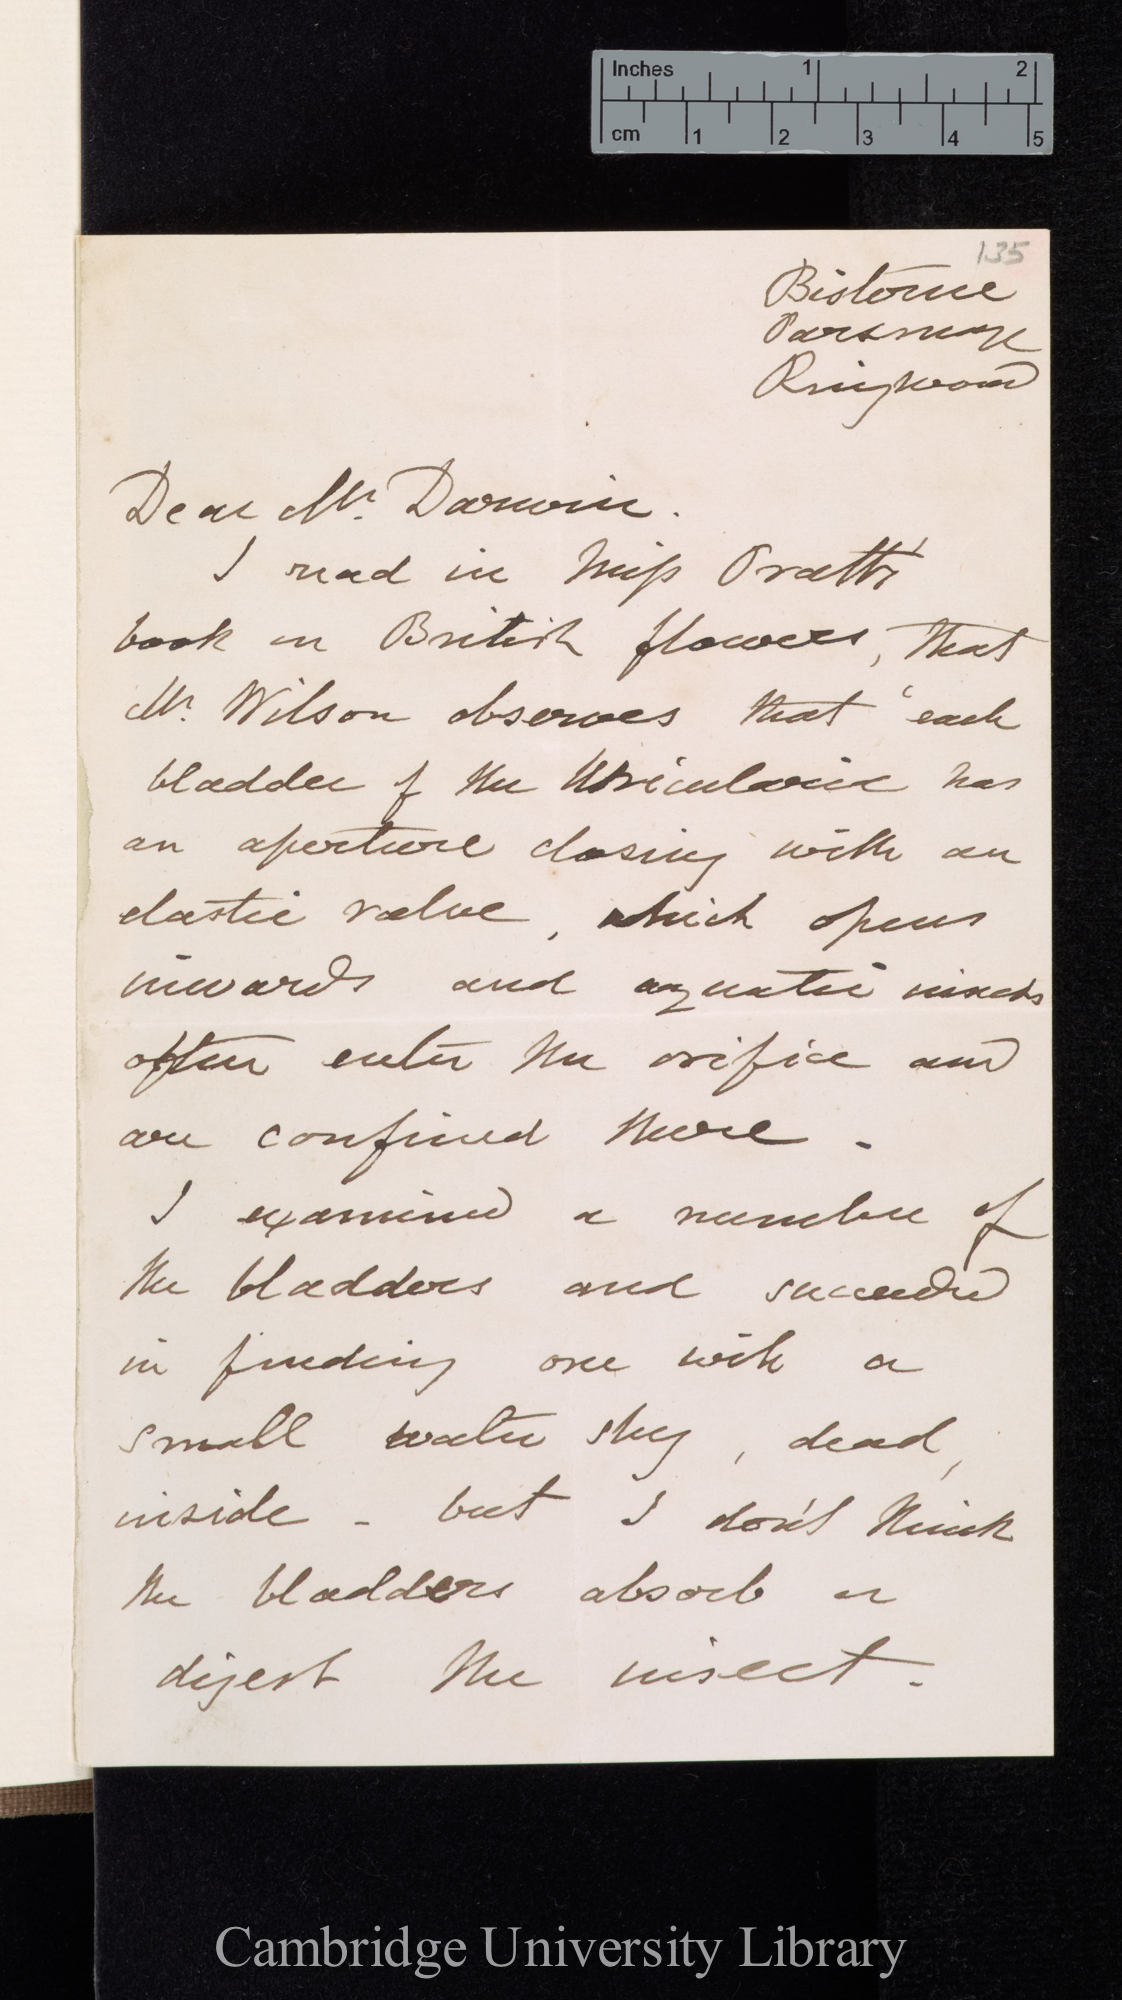 Inches 1 2
cm 1 2 3 4 5
135
Bisterne
Parsonage
Ringwood
Dear Mr. Darwin.
I read in Miss Pratt's
book on British flowers, that
Mr. Wilson observes that 'each
bladder of the Utricularia has
an aperture closing with an
elastic valve, which opens
inwards and aquatic insects
often enter the orifice and
are confined there.
I examined a number of
the bladders and succeeded
in finding one with a
small water slug, dead,
inside - but I don't think
the bladders absorb or
digest the insect.
Cambridge University Library